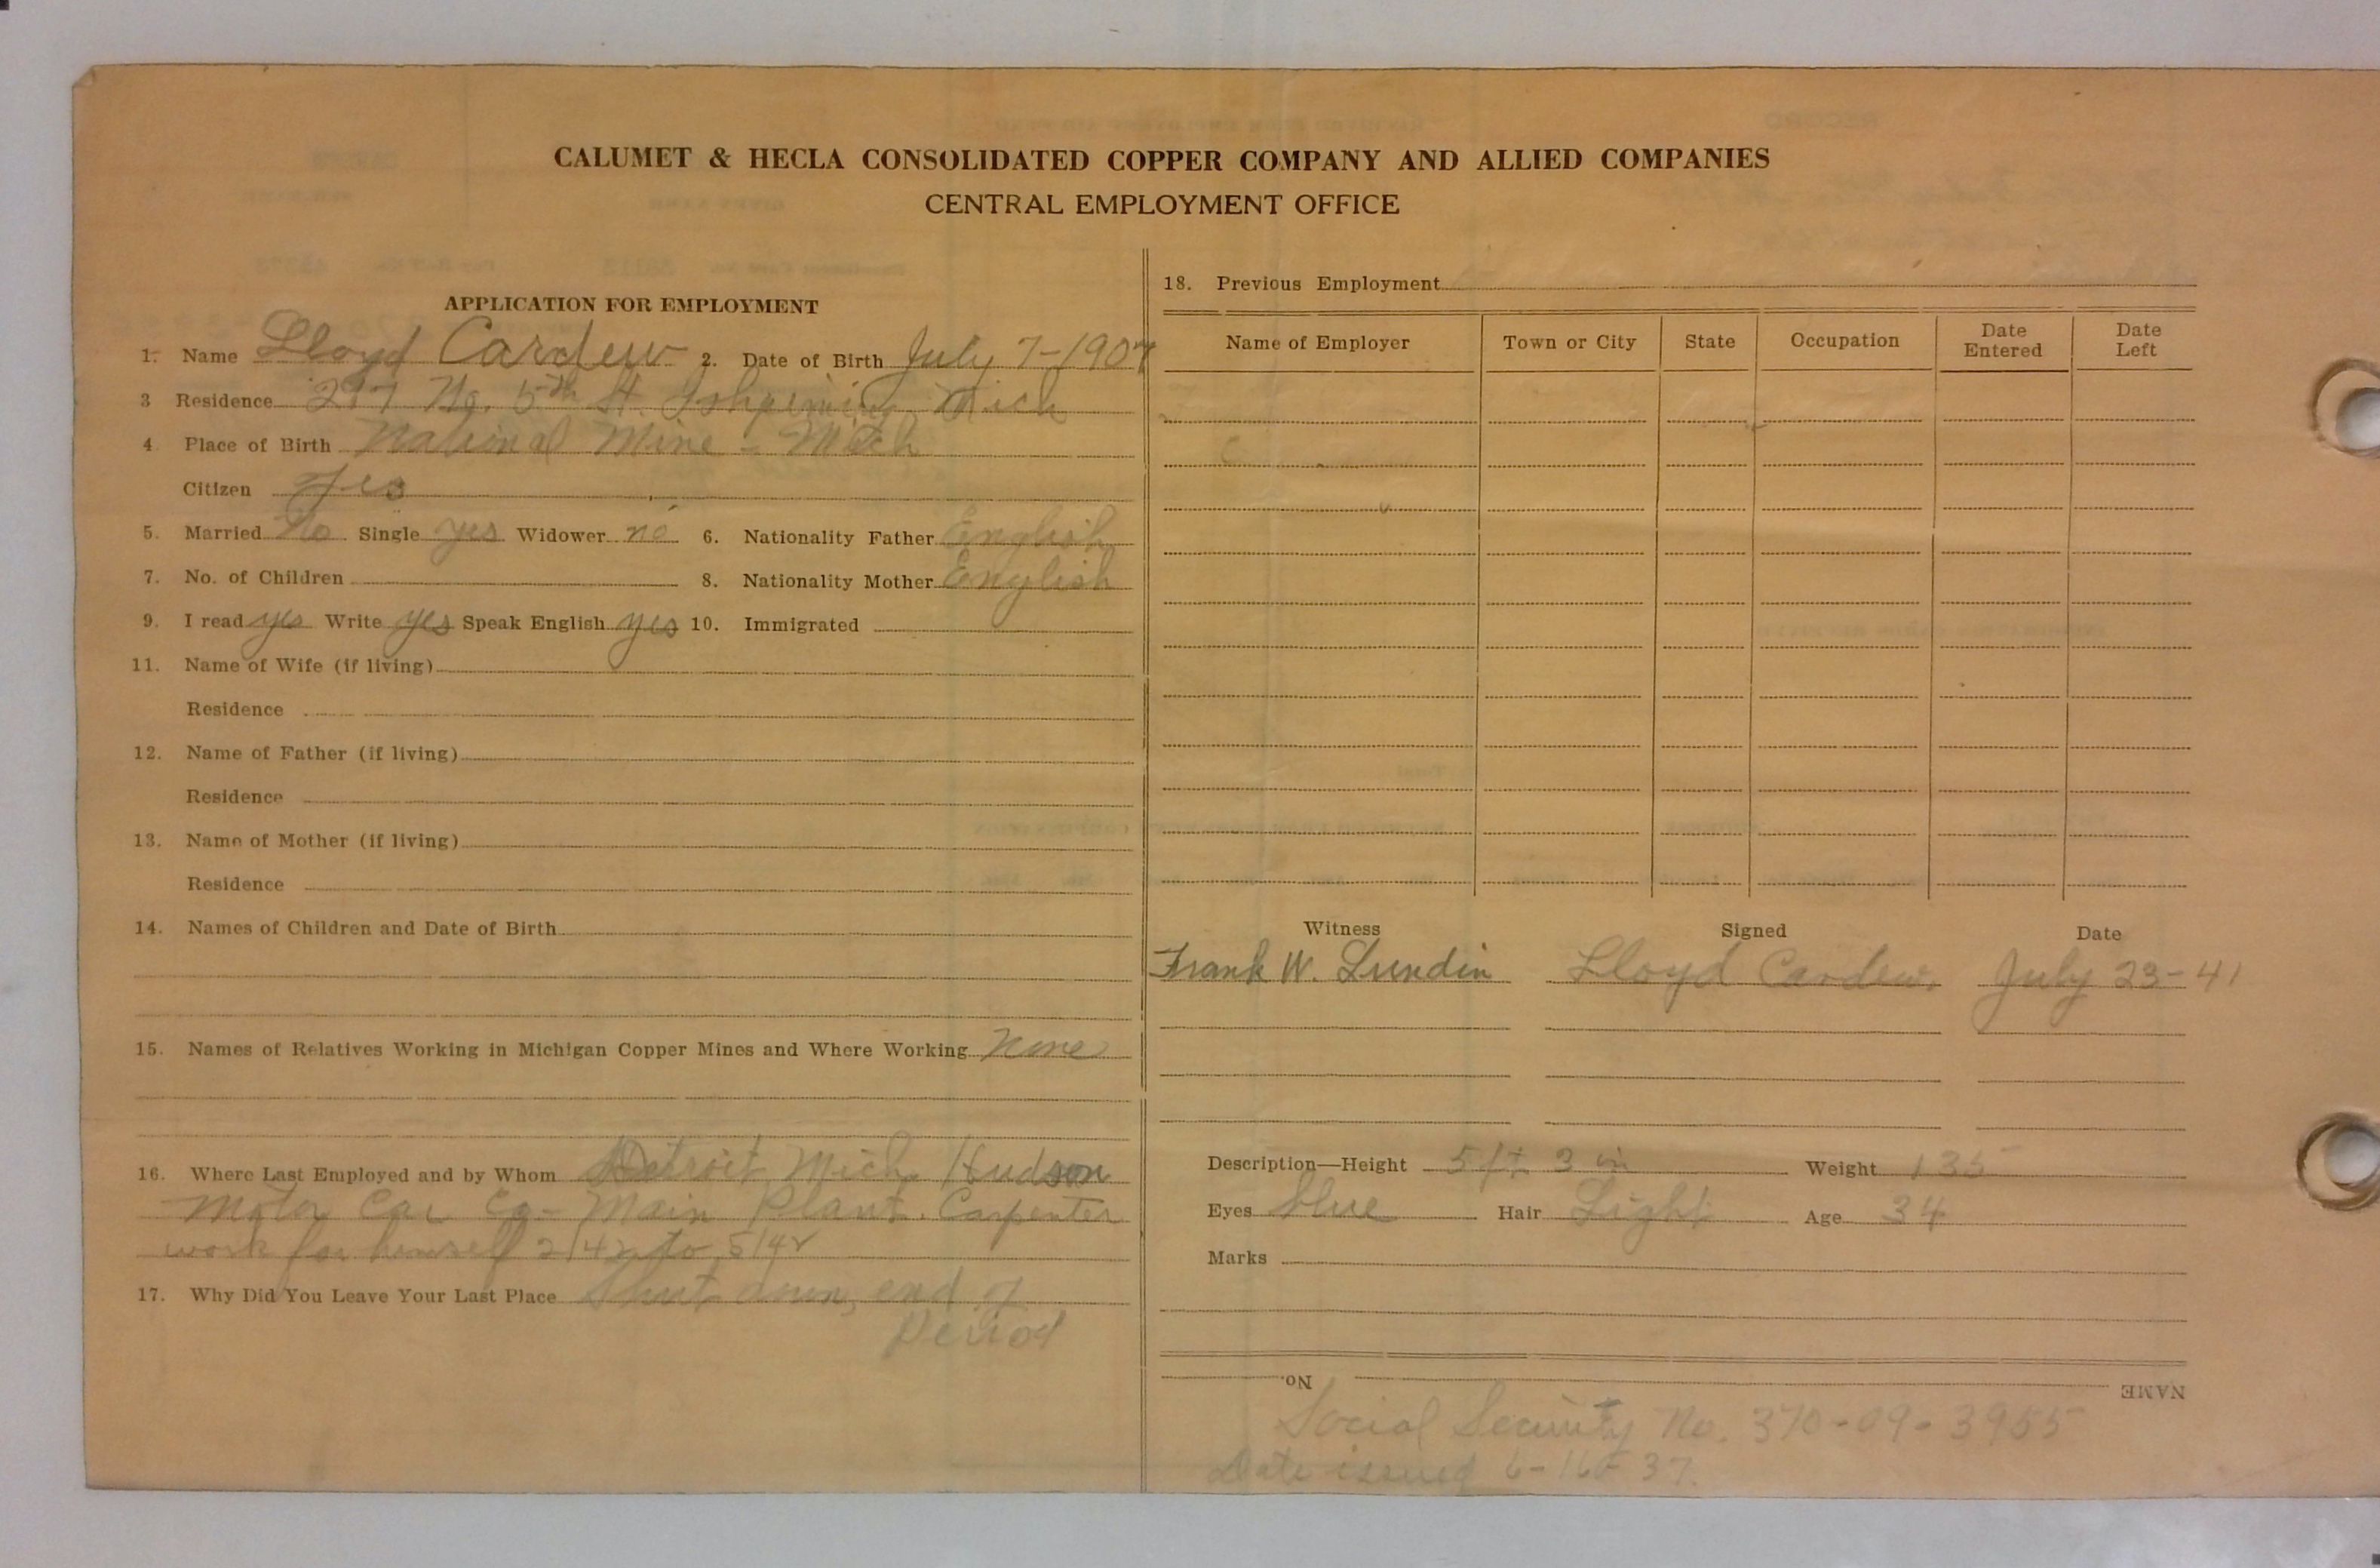 CALUMET & HECLA CONSOLIDATED COPPER COMPANY AND ALLIED COMPANIES
CENTRAL EMPLOYMENT OFFICE
APPLICATION FOR EMPLOYMENT
1. Name Lloyd Cardew 2. Date of Birth July 7-1907
3 Residence 297 No. 5th St. Ishpeming, Mich
4. Place of Birth National Mine - Mich
Citizen Yes
5. Married No Single yes Widower no 6. Nationality Father English
7. No. of Children 8. Nationality Mother English
9. I read yes Write yes Speak English yes 10. Immigrated
11. Name of Wife (if living)
Residence
12. Name of Father (if living)
Residence
13. Name of Mother (if living)
Residence
14. Names of Children and Date of Birth
15. Names of Relatives Working in Michigan Copper Mines and Where Working None
16. Where Last Employed and by Whom Detroit Mich. Hudson
Motor Car Co- Main Plant. Carpenter
work for himself 2/42 to 5/42
17. Why Did You Leave Your Last Place Shut down, end of
Period
18. Previous Employment
Name of Employer Town or City State Occupation Date Entered Date Left
Witness Signed Date
Frank W. Lundin Lloyd Cardew. July 23-41
Description—Height 5 ft 3 in Weight 135
Eyes blue Hair Light Age 34
Marks
No. NAME
Social Security No. 370-09-3955
Date issued 6-16-37.